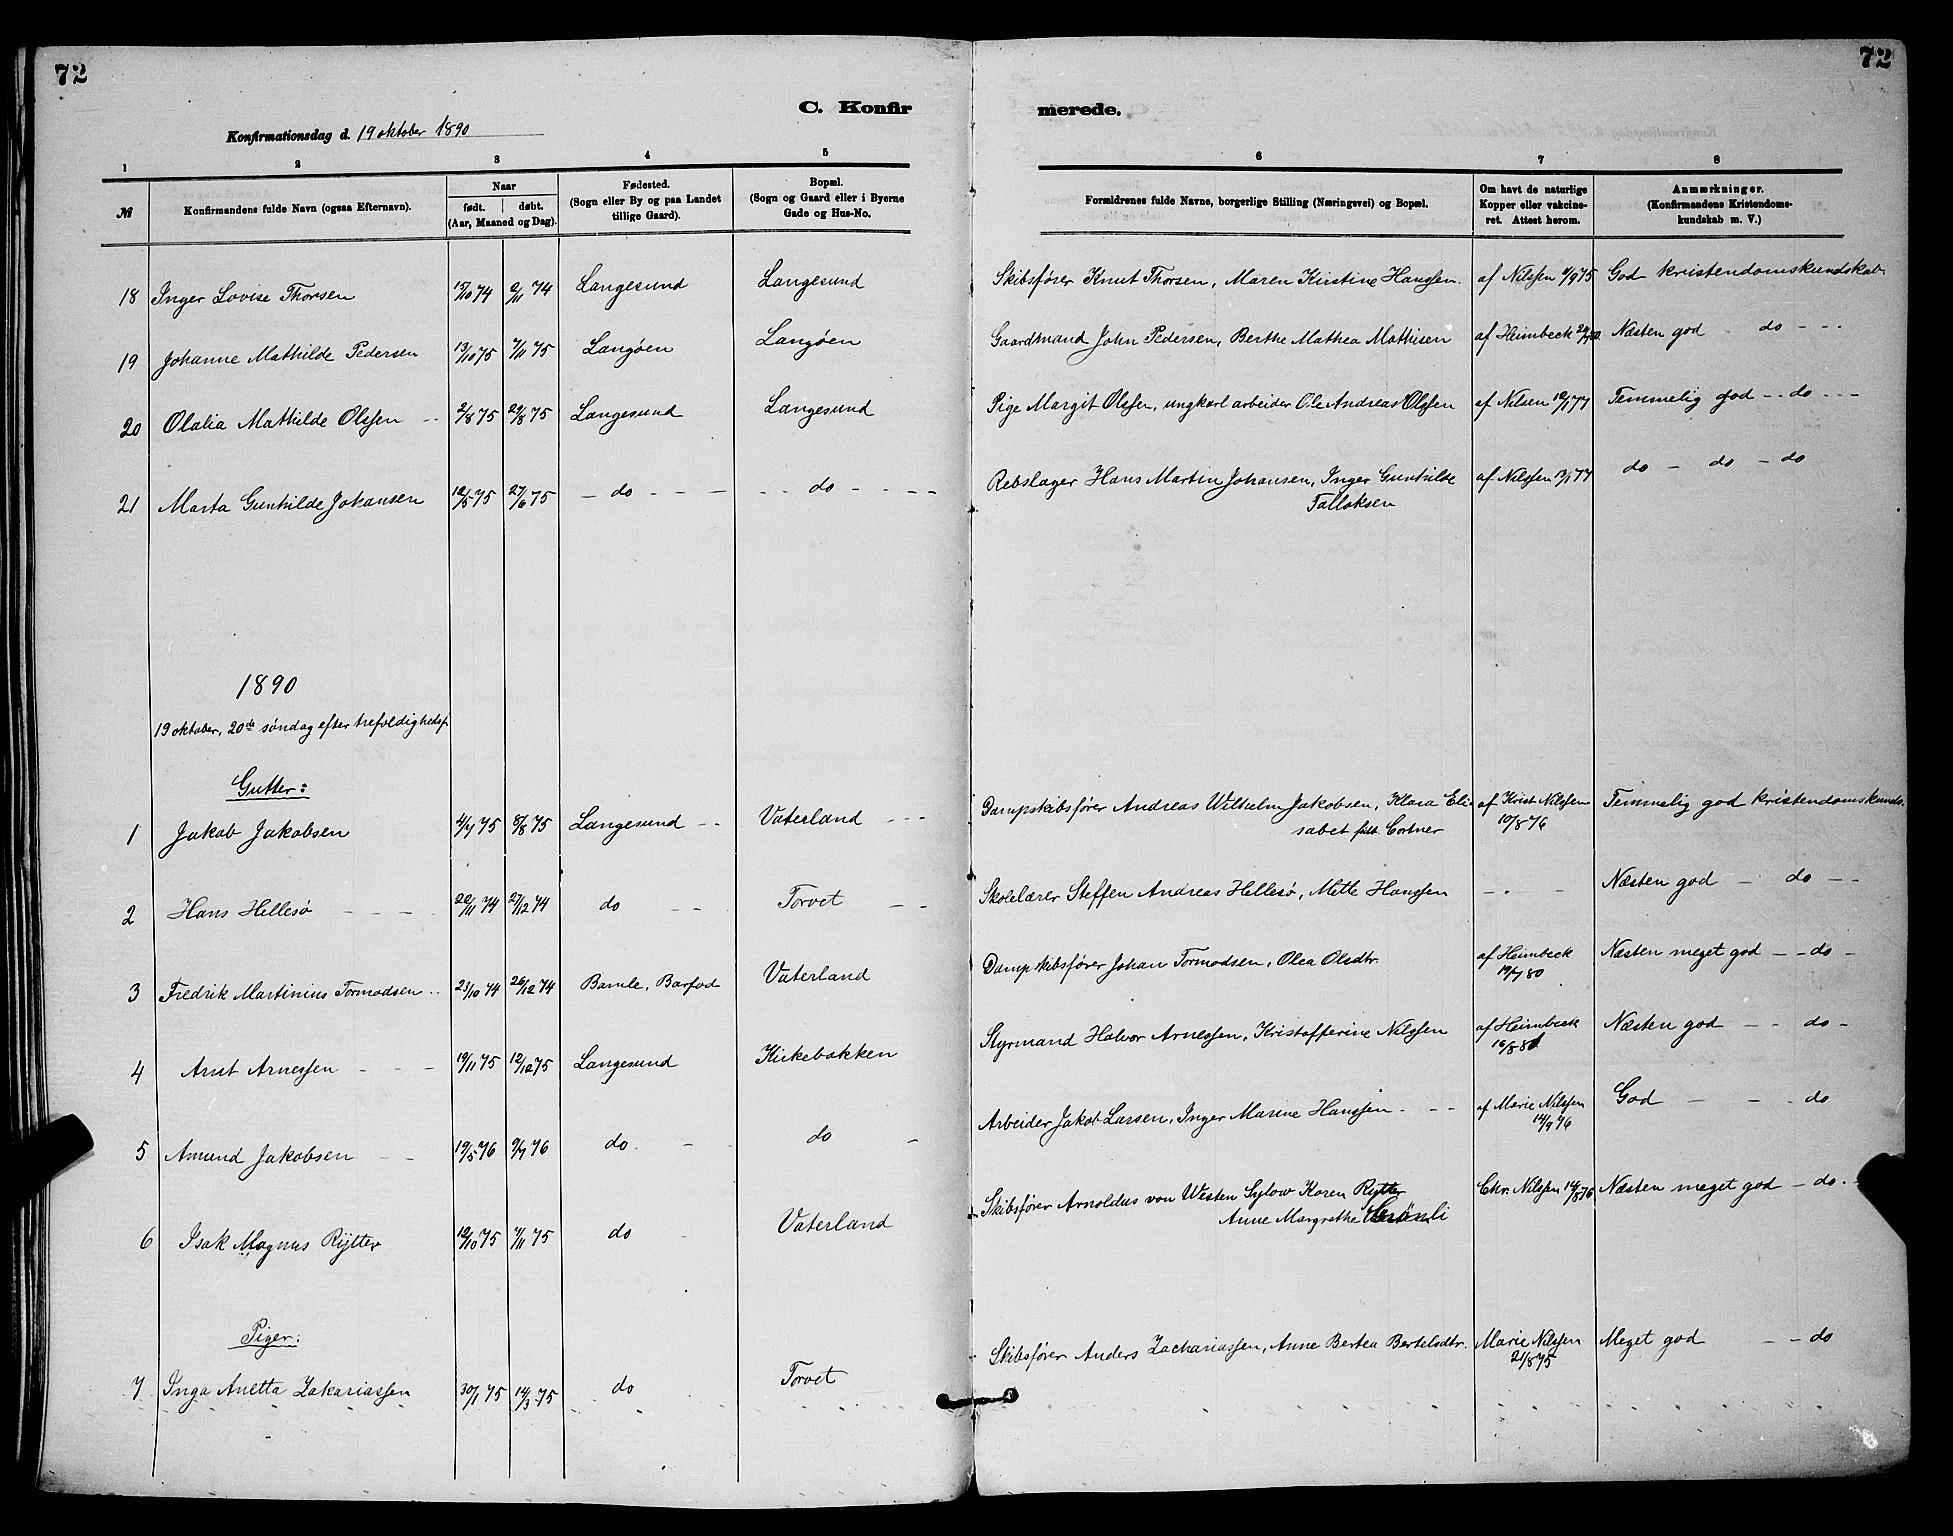 72
72
C. Konfir
merede.
Konfirmationsdag d. 19 oktober 1890
1 2 3 4 5 6 7 8
№
Konfirmandens fulde Navn (ogsaa Efternavn).
Naar
født. døbt.
(Aar, Maaned og Dag).
Fødested.
(Sogn eller By og paa Landet
tillige Gaard).
Bopæl.
(Sogn og Gaard eller i Byerne
Gade og Hus-No.
Forældrenes fulde Navne, borgerlige Stilling (Næringsvei) og Bopæl.
Om havt de naturlige
Kopper eller vakcine-
ret. Attest herom.
Anmærkninger.
(Konfirmandens Kristendoms-
kundskab m. V.)
18 Inger Lovise Thorsen 15/10 74 2/11 74 Langesund Langesund Skibsfører Knut Thorsen, Maren Kirstine Hanssen. af Nilssen 4/9 75 God kristendomskundskab.
19 Johanne Mathilde Pedersen 13/10 75 7/11 75 Langøen Langøen Gaardmand John Pedersen, Berthe Mathea Mathisen af Heimbeck Næsten god - do - - -
20 Olalia Mathilde Olssen 2/8 75 29/8 75 Langesund Langesund Pige Margit Olssen, ungkarl arbeider Ole Andreas Olssen af Nilsen 12/1 77 Temmelig god - - do - - -
21 Marta Gunhilde Johansen 12/5 75 27/6 75 - do - - - - - do - - - - Rebslager Hans Martin Johansen, Inger Gunhilde af Nilssen 13/1 77 do - do - do
Talloksen
1890
19 oktober, 20de søndag efter trefoldighedsf.
Gutter:
1 Jakob Jakobsen 4/7 75 8/8 75 Langesund - - Vaterland - - - Dampskibsfører Andreas Wilhelm Jakobsen, Klara Eli- af Krist Nilssen Temmelig god kristendomskunds.
sabet født Cortner 10/8 76
2 Hans Hellesø 22/11 74 27/12 74 do - - Torvet - - Skolelærer Steffen Andreas Hellesø, Mette Hanssen - . - - Næsten god - do - -
3 Fredrik Martinius Tormodsen 23/10 74 26/12 74 Bamle, Barfod Vaterland Dampskibsfører Johan Tormodsen, Olea Olsdtr. af Heimbeck Næsten meget god - - do -
19/7 80
4 Arnt Arnessen 19/11 75 12/12 75 Langesund Kirkebakken Styrmand Halvor Arnessen, Kristofferine Nilssen af Heimbeck Næsten god - - do -
5 Amund Jakobsen 19/5 76 9/7 76 do do Arbeider Jakob Larsen, Inger Marine Hanssen af Marie Nilssen God - - do
14/9 76
6 Isak Magnus Rytter 12/10 75 7/11 75 do Vaterland Skibsfører Arnoldus von Westen Sylow Koren Rytter Chr. Nilssen 14/8 76 Næsten meget god - do. -
Anne Margrethe Grønli
Piger:
7 Inga Anetta Zakariassen 30/1 75 14/3 75 do Torvet Skibsfører Anders Zachariassen, Anne Bertea Bertelsdtr. Marie Nilssen Meget god - - do
21/8 75